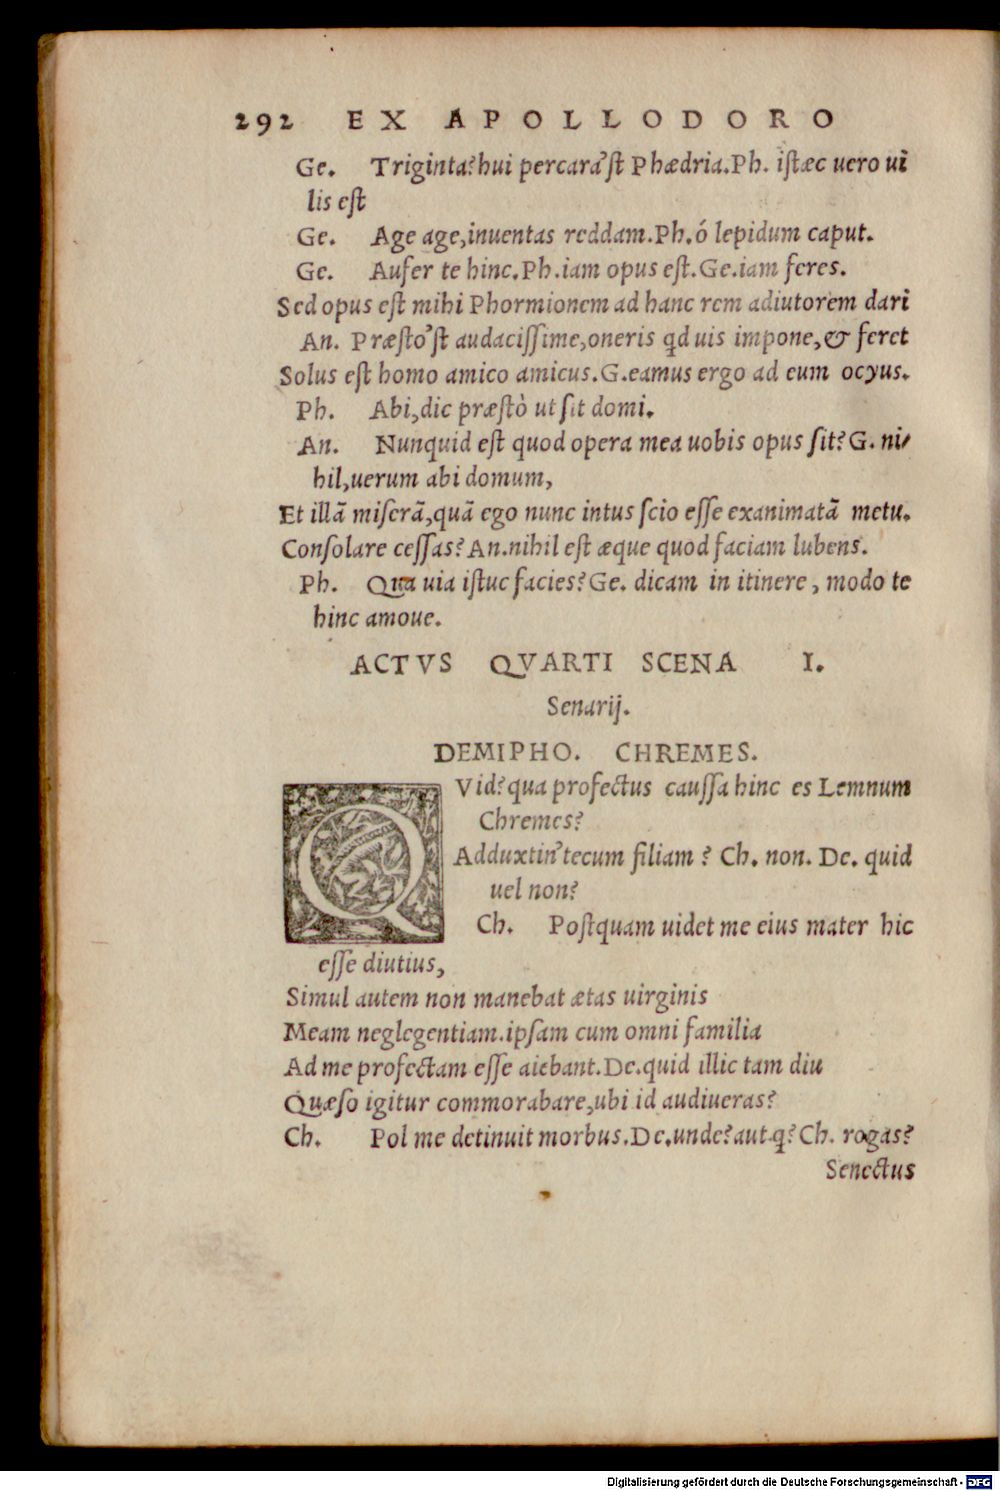 292 EX APOLLODORO
Ge. Triginta? hui percara'ſt Phædria. Ph. iſtæc uero ui
lis eſt
Ge. Age age, inuentas reddam. Ph. ó lepidum caput.
Ge. Aufer te hinc. Ph. iam opus eſt. Ge. iam feres.
Sed opus eſt mihi Phormionem ad hanc rem adiutorem dari
An. Præſto'ſt audaciſſime, oneris qd uis impone, & feret
Solus eſt homo amico amicus. G. eamus ergo ad eum ocyus.
Ph. Abi, dic præſtò ut ſit domi.
An. Nunquid eſt quod opera mea uobis opus ſit? G. ni-
hil, uerum abi domum,
Et illã miſerã, quã ego nunc intus ſcio eſſe exanimatã metu.
Conſolare ceſſas? An. nihil eſt æque quod faciam lubens.
Ph. Qua uia iſtuc facies? Ge. dicam in itinere, modo te
hinc amoue.
ACTVS QVARTI SCENA I.
Senarij.
DEMIPHO. CHREMES.
QVid? qua profectus cauſſa hinc es Lemnum
Chremes?
Adduxtin' tecum filiam? Ch. non. De. quid
uel non?
Ch. Poſtquam uidet me eius mater hic
eſſe diutius,
Simul autem non manebat ætas uirginis
Meam neglegentiam. ipſam cum omni familia
Ad me profectam eſſe aiebant. De. quid illic tam diu
Quæſo igitur commorabare, ubi id audiueras?
Ch. Pol me detinuit morbus. De. unde? aut q? Ch. rogas?
Senectus
Digitalisierung gefördert durch die Deutsche Forschungsgemeinschaft - DFG